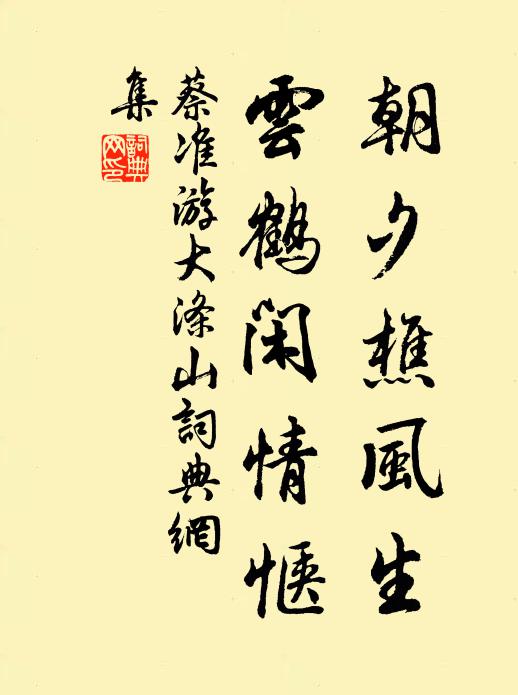 朝夕樵風生
雲鶴閑情愜
蔡准游大滌山詞典網
集
詞典
网印